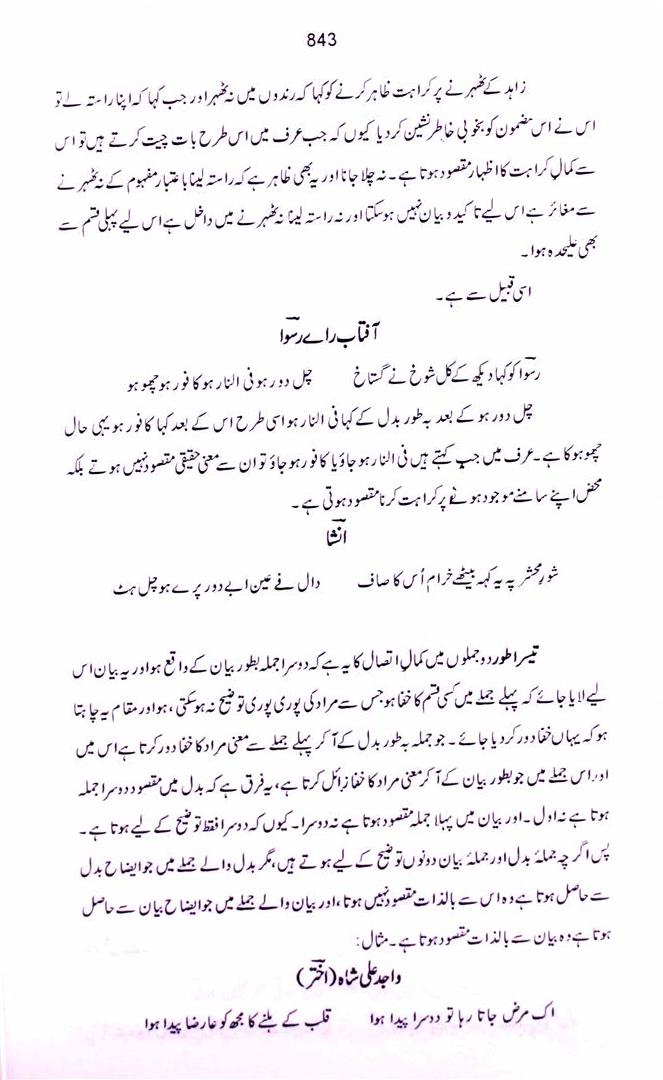 843
زاہد کے ٹھہرنے پر کراہت ظاہر کرنے کو کہا کہ رندوں میں نہ ٹھہر اور جب کہا کہ اپنا راستہ لے تو
اس نے اس مضمون کو بخوبی خاطر نشین کر دیا کیوں کہ جب عرف میں اس طرح بات چیت کرتے ہیں تو اس
سے کمالِ کراہت کا اظہار مقصود ہوتا ہے۔ نہ چلا جانا اور یہ بھی ظاہر ہے کہ راستہ لینا باعتبار مفہوم کے نہ ٹھہرنے
سے مغائر ہے اس لیے تاکید و بیان نہیں ہو سکتا اور نہ راستہ لینا نہ ٹھہرنے میں داخل ہے اس لیے پہلی قسم سے
بھی علیحدہ ہوا۔
اسی قبیل سے ہے۔
آفتاب راے رسوا
رسوا کو کہا دیکھ کے کل شوخ نے گستاخ چل دور ہو فی النار ہو کافور ہو چھو ہو
چل دور ہو کے بعد بہ طور بدل کے کہا فی النار ہو اسی طرح اس کے بعد کہا کافور ہو یہی حال
چھو ہو کا ہے۔ عرف میں جب کہتے ہیں فی النار ہو جاؤ یا کافور ہو جاؤ تو ان سے معنی حقیقی مقصود نہیں ہوتے بلکہ
محض اپنے سامنے موجود ہونے پر کراہت کرنا مقصود ہوتی ہے۔
انشا
شورِ محشر پہ یہ کہہ بیٹھے خرام اُس کا صاف دال فے عین ابے دور پرے ہو چل ہٹ
تیسرا طور دو جملوں میں کمالِ اتصال کا یہ ہے کہ دوسرا جملہ بطور بیان کے واقع ہو اور یہ بیان اس
لیے لایا جائے کہ پہلے جملے میں کسی قسم کا خفا ہو جس سے مراد کی پوری پوری توضیح نہ ہو سکتی، ہو اور مقام یہ چاہتا
ہو کہ یہاں خفا دور کر دیا جائے۔ جو جملہ بہ طور بدل کے آ کر پہلے جملے سے معنی مراد کا خفا دور کرتا ہے اس میں
اور اس جملے میں جو بطور بیان کے آ کر معنی مراد کا خفا زائل کرتا ہے، یہ فرق ہے کہ بدل میں مقصود دوسرا جملہ
ہوتا ہے نہ اول۔ اور بیان میں پہلا جملہ مقصود ہوتا ہے نہ دوسرا۔ کیوں کہ دوسرا فقط توضیح کے لیے ہوتا ہے۔
پس اگرچہ جملۂ بدل اور جملۂ بیان دونوں توضیح کے لیے ہوتے ہیں، مگر بدل والے جملے میں جو ایضاح بدل
سے حاصل ہوتا ہے وہ اس سے بالذات مقصود نہیں ہوتا، اور بیان والے جملے میں جو ایضاح بیان سے حاصل
ہوتا ہے وہ بیان سے بالذات مقصود ہوتا ہے۔ مثال:
واجد علی شاہ (اختر)
اک مرض جاتا رہا تو دوسرا پیدا ہوا قلب کے ہلنے کا مجھ کو عارضا پیدا ہوا